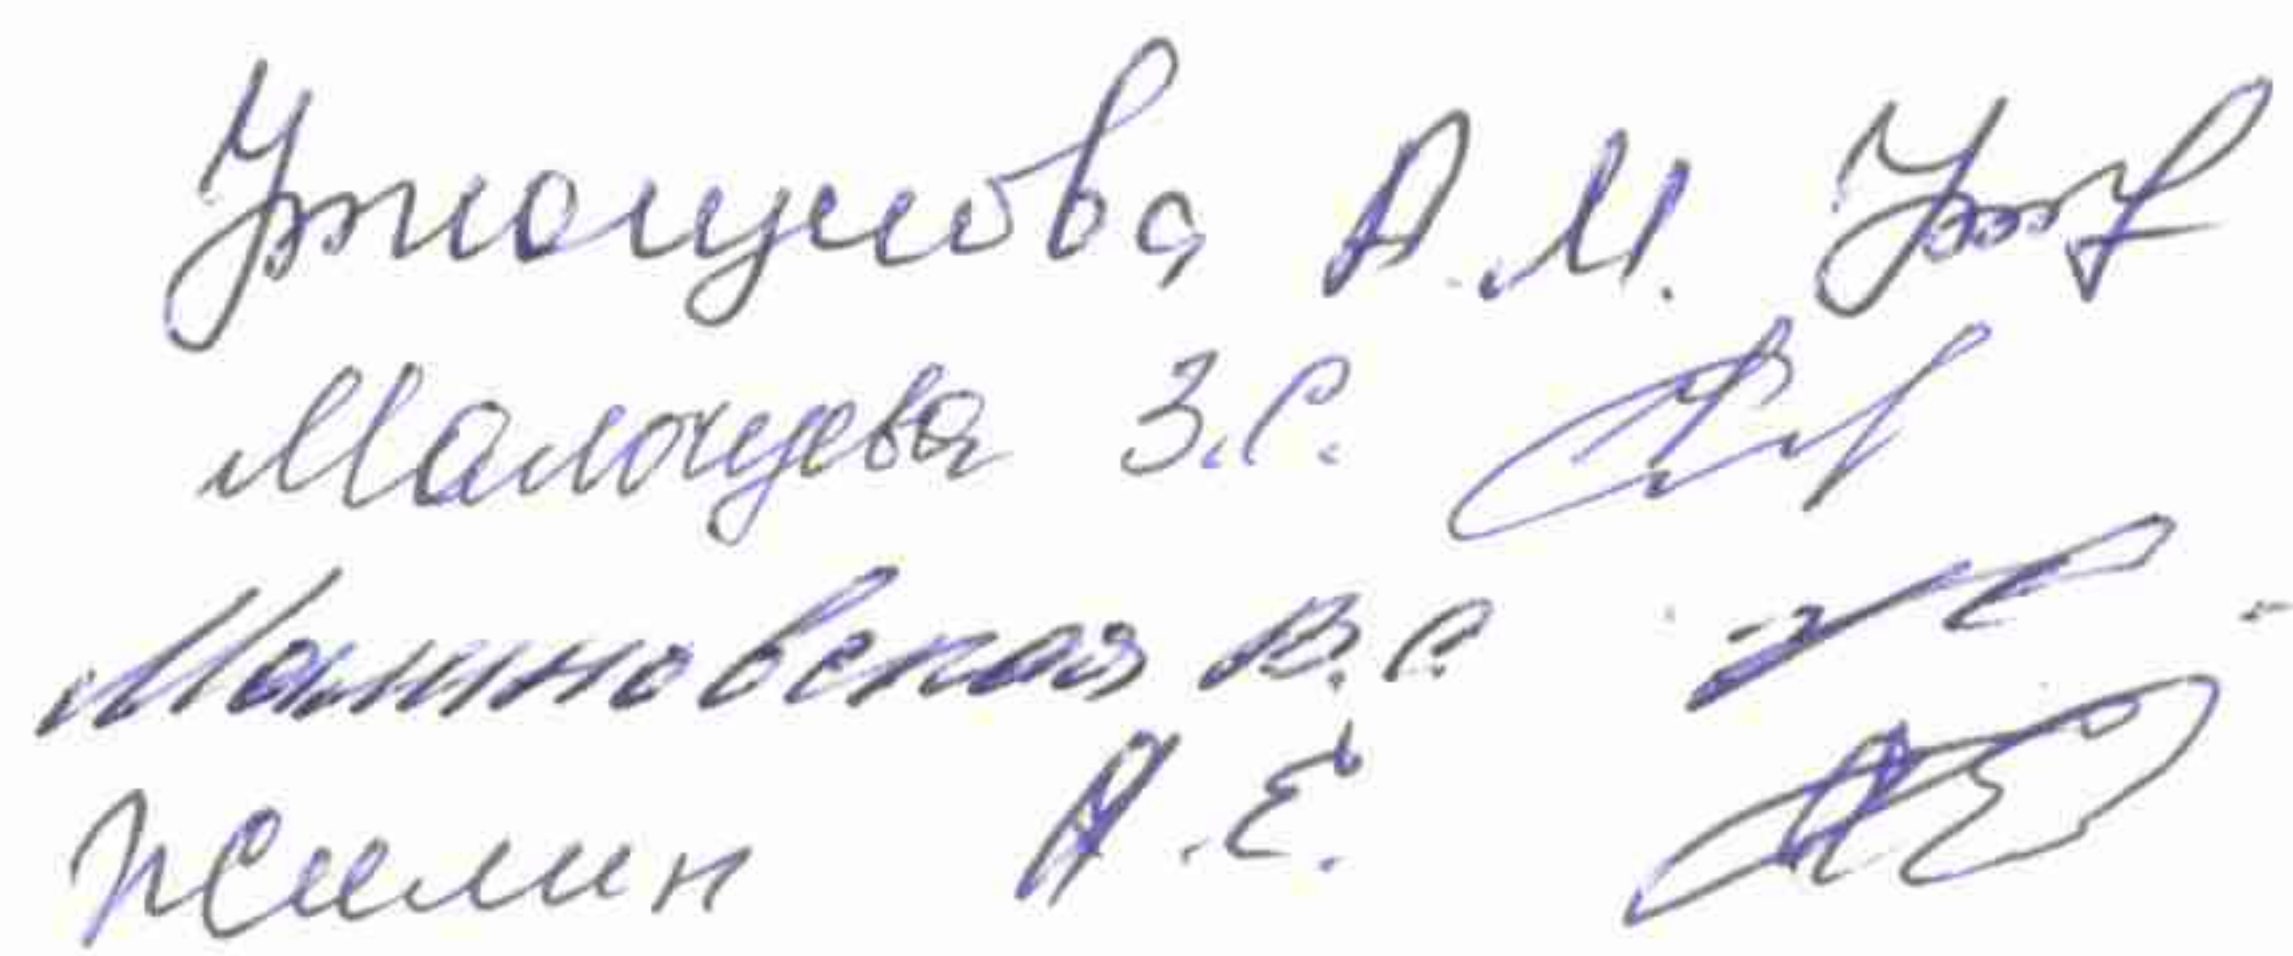 Утюшева А.М.
Малоцева З.С.
Малиновская В.С.
Жилин А.Е.